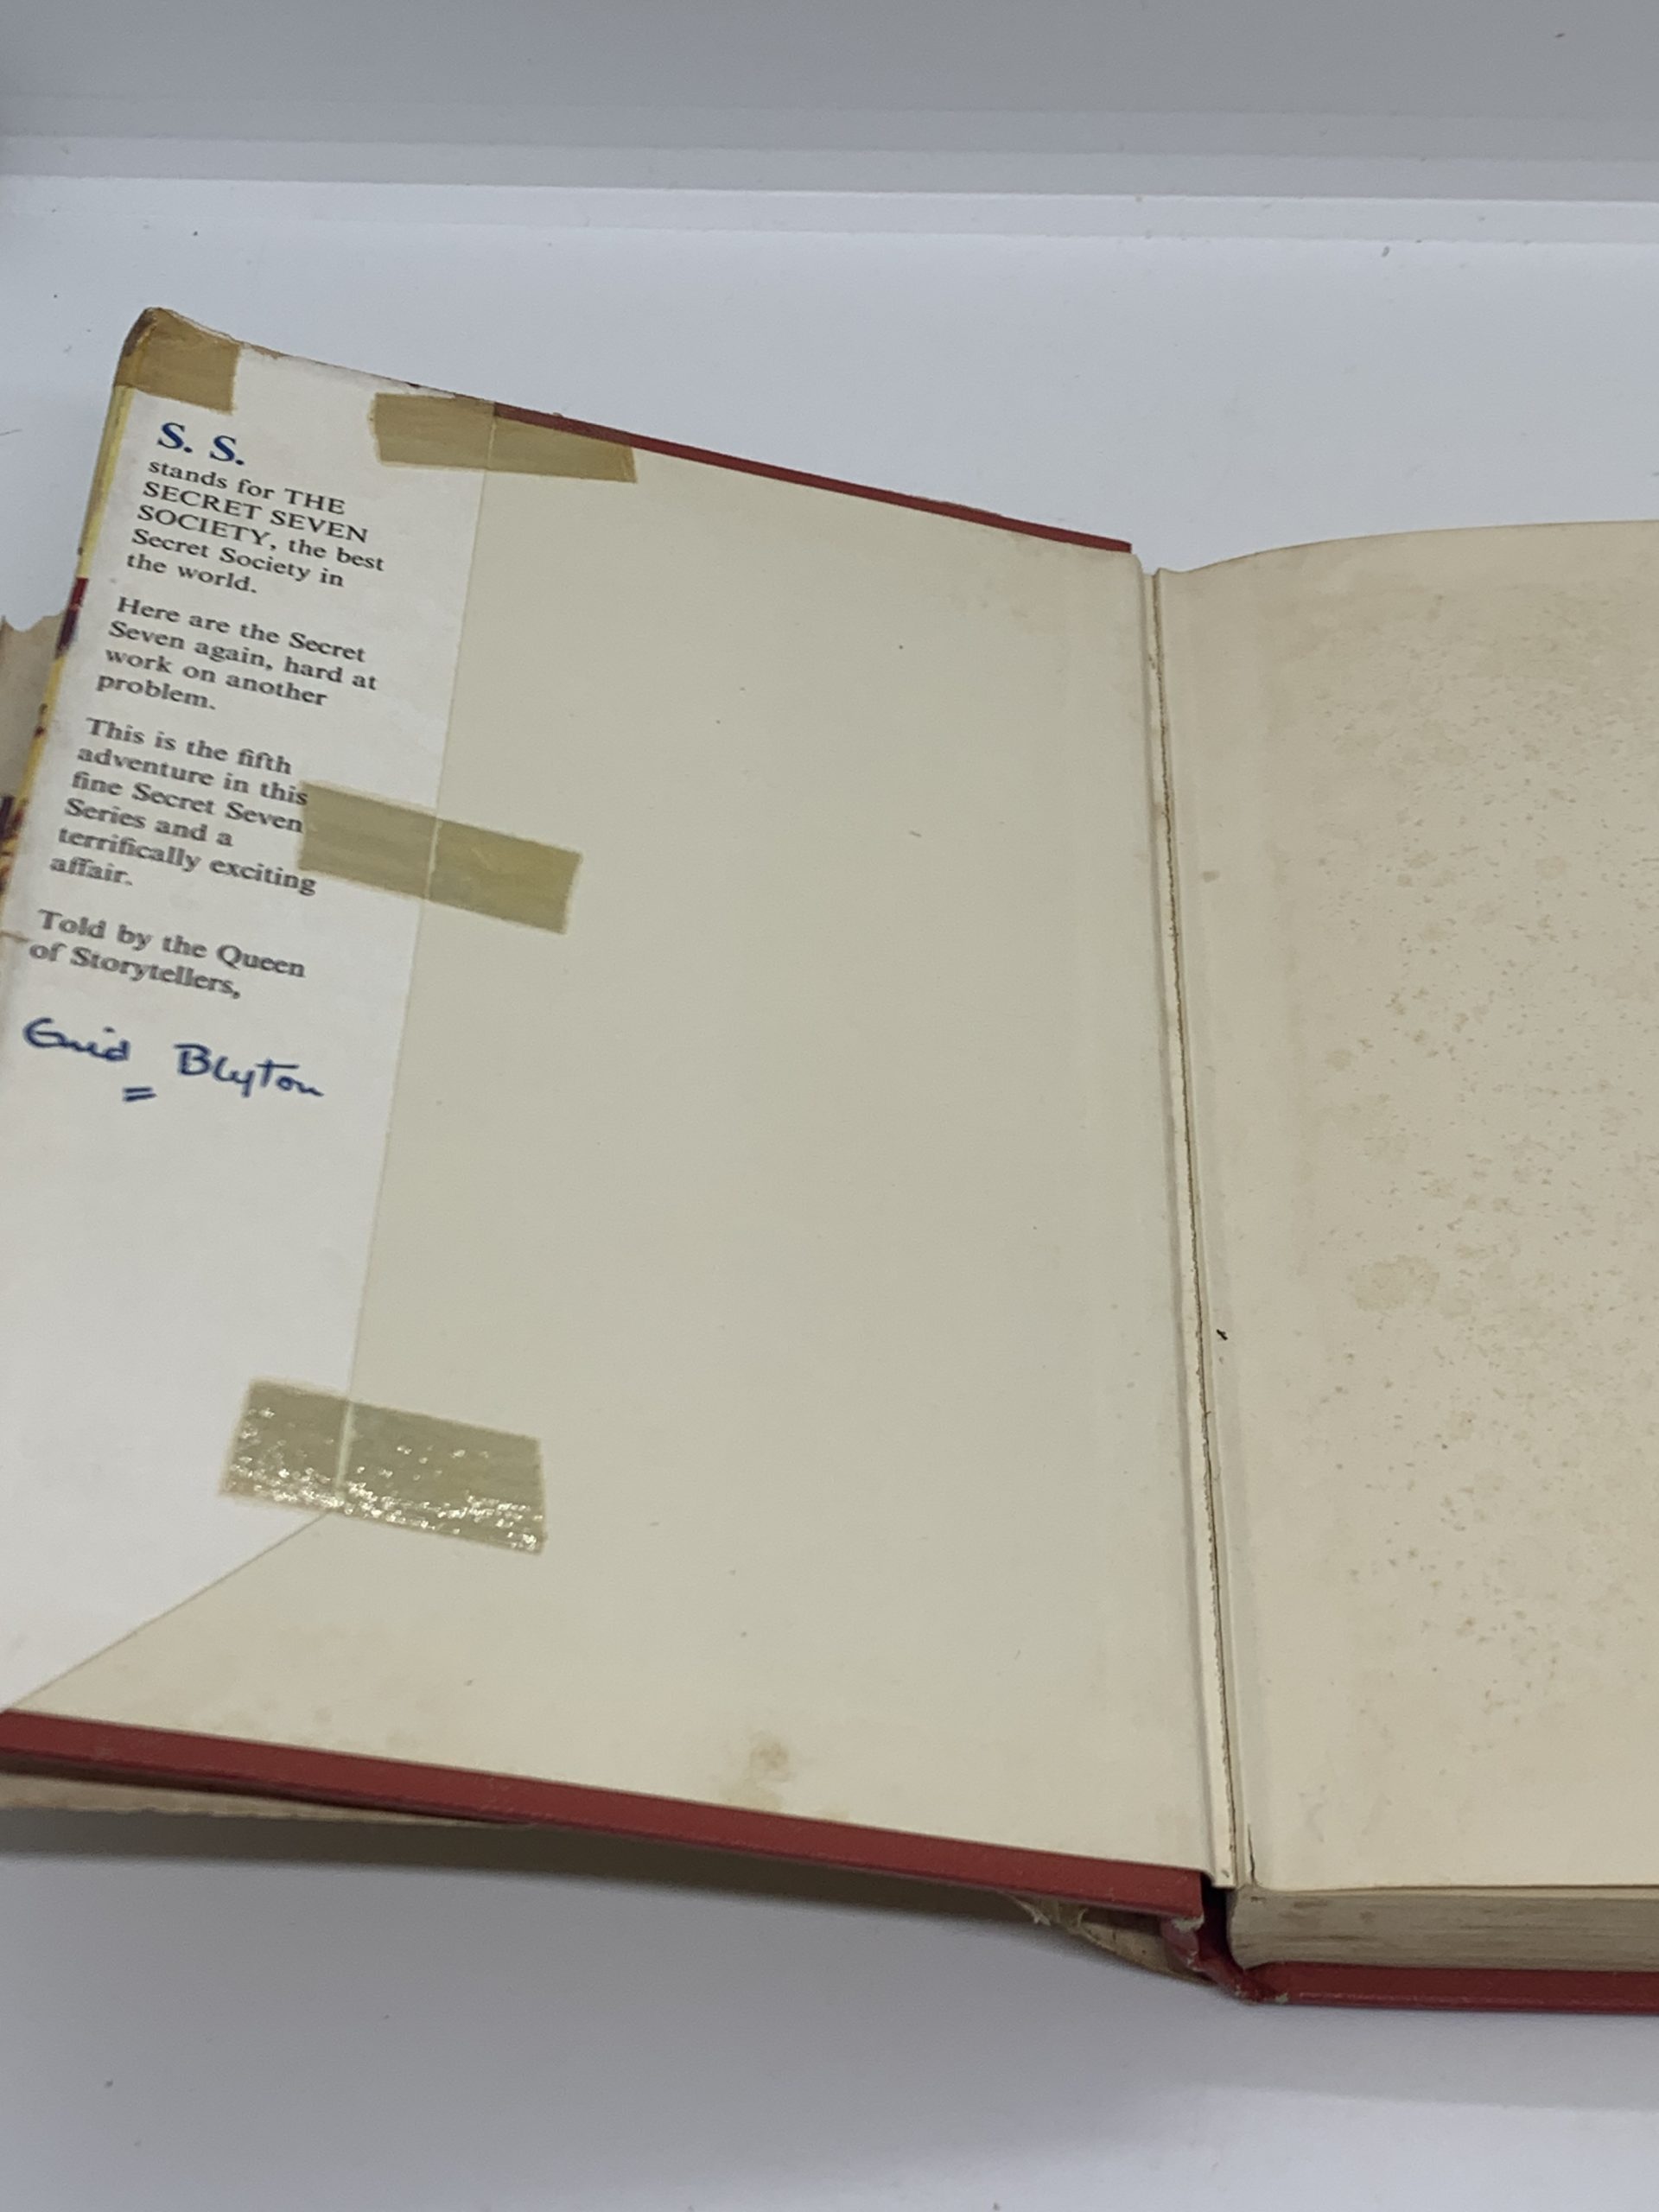 S. S.
stands for THE
SECRET SEVEN
SOCIETY, the best
Secret Society in
the world.
Here are the Secret
Seven again, hard at
work on another
problem.
This is the fifth
adventure in this
fine Secret Seven
Series and a
terrifically exciting
affair.
Told by the Queen
of Storytellers,
Enid Blyton